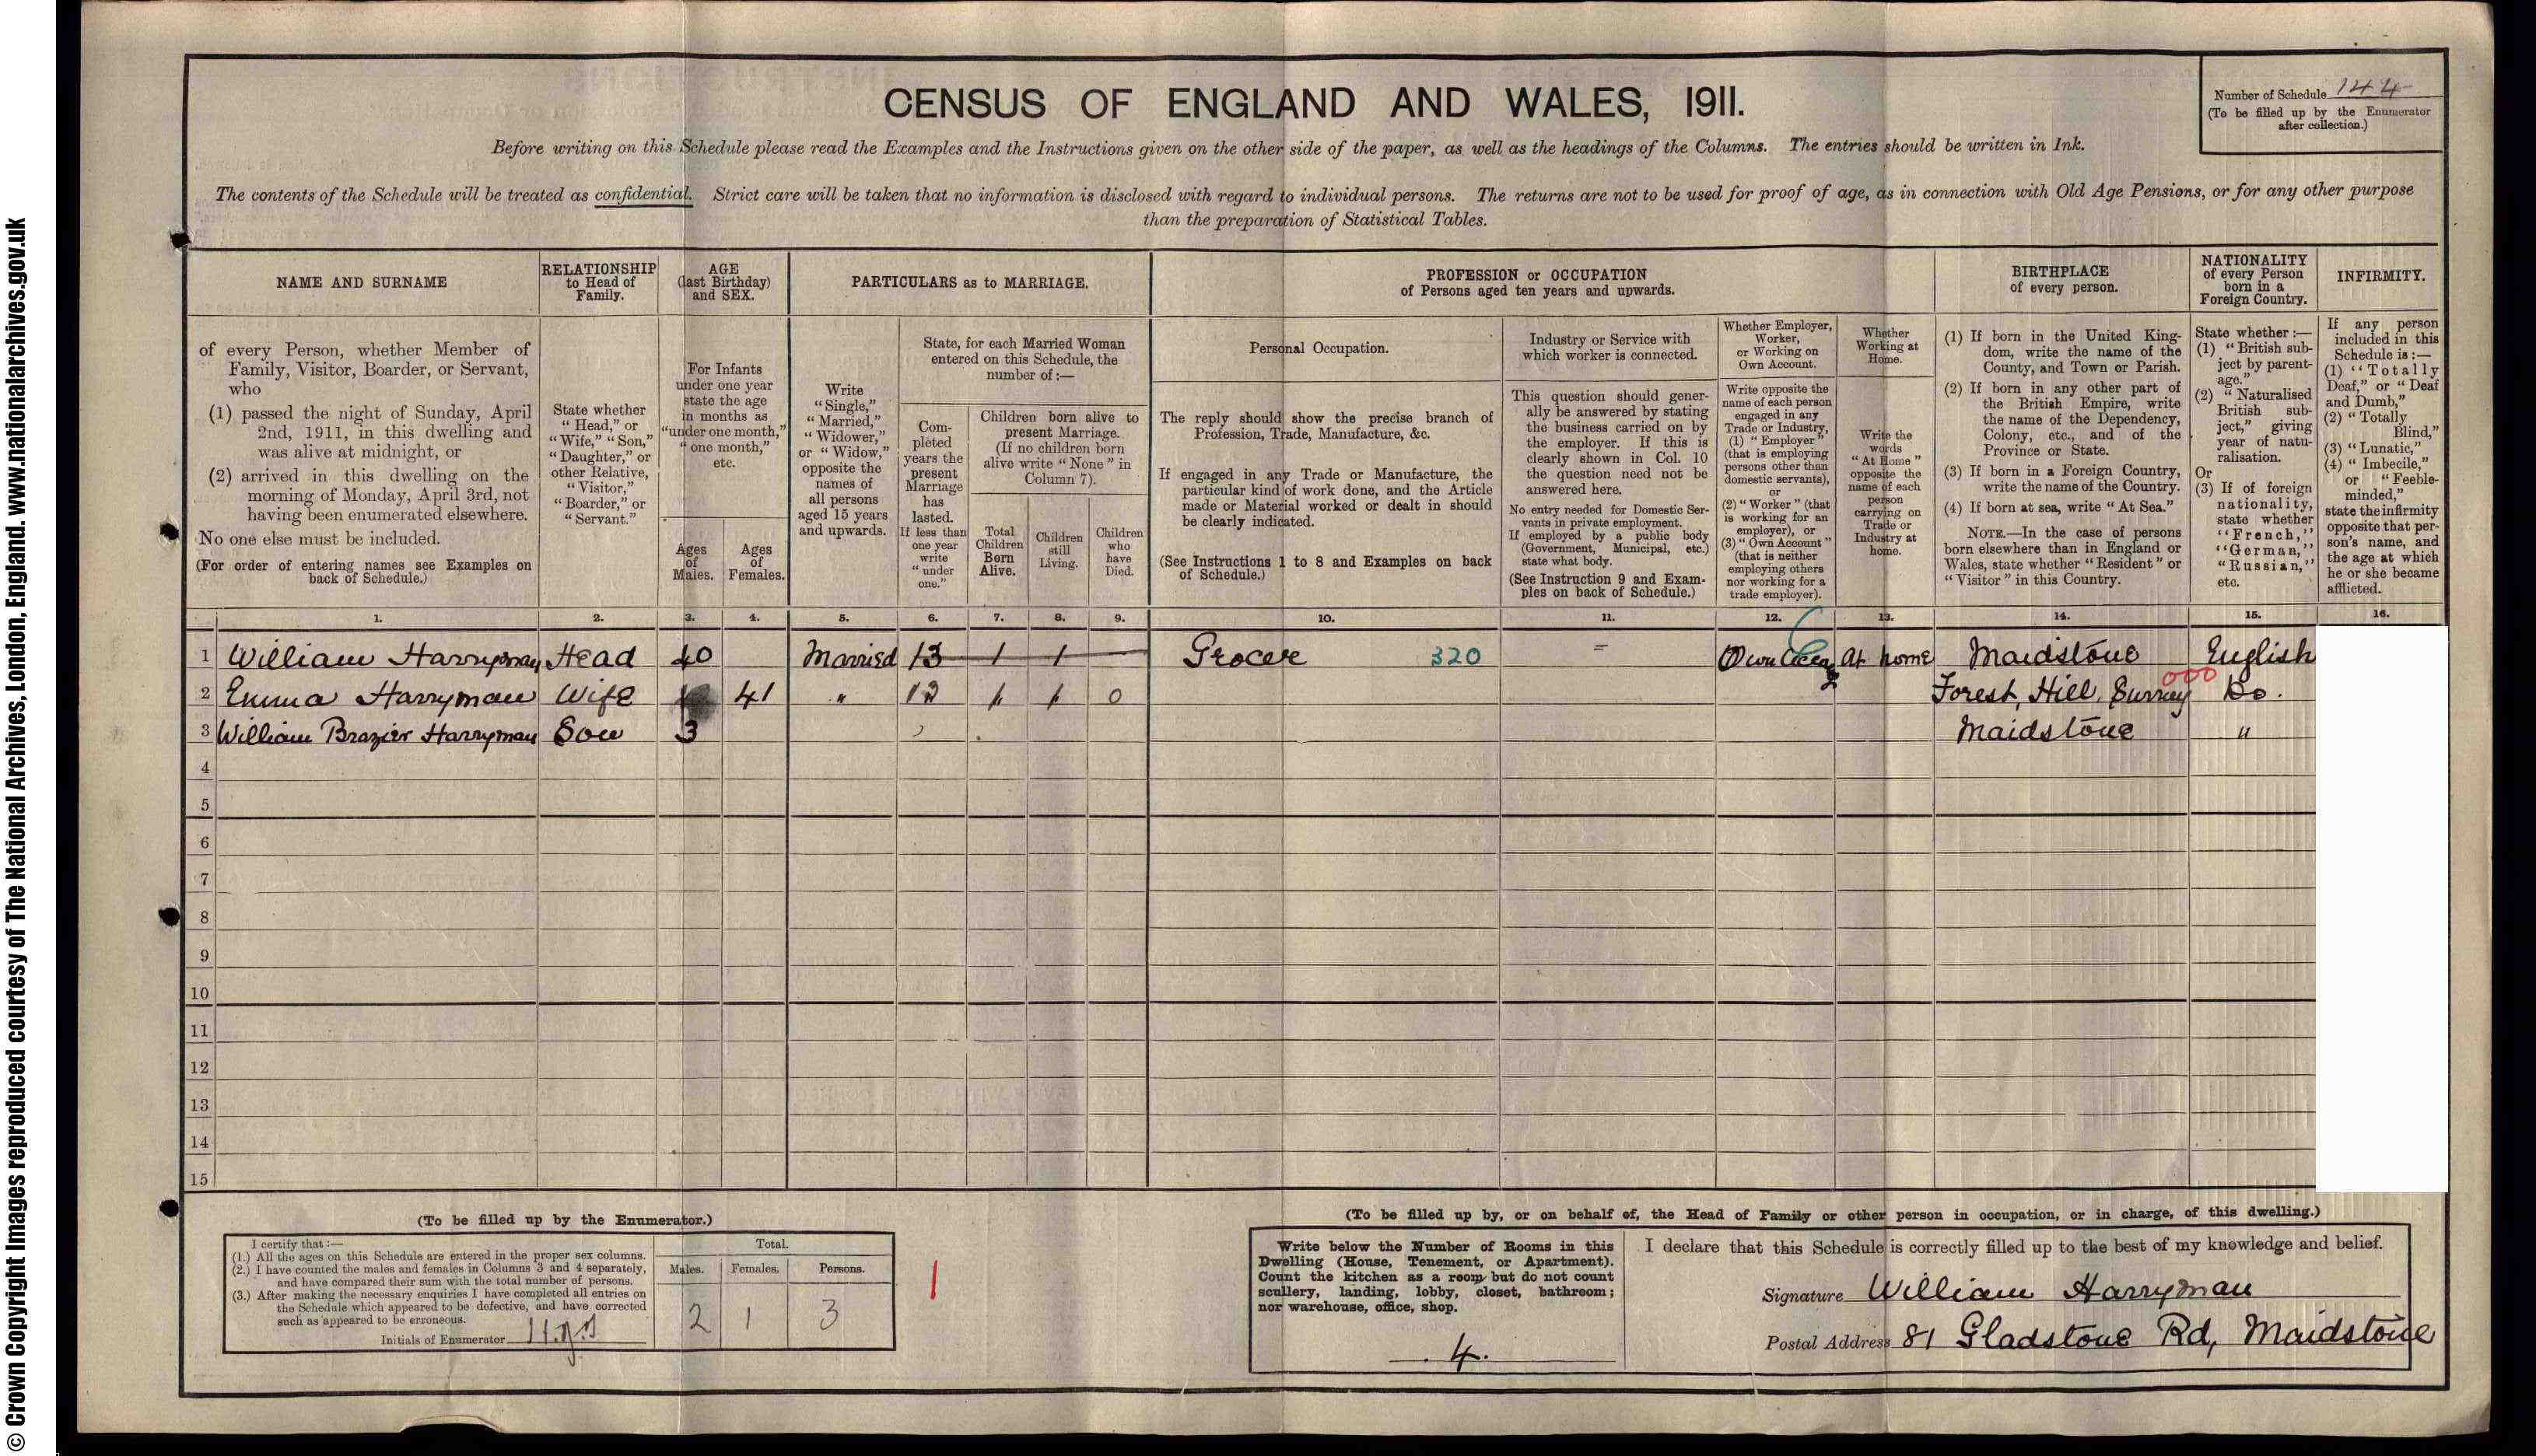 © Crown Copyright Images reproduced courtesy of The National Archives, London, England. www.nationalarchives.gov.uk
CENSUS OF ENGLAND AND WALES, 1911.
Number of Schedule 144
(To be filled up by the Enumerator
after collection.)
Before writing on this Schedule please read the Examples and the Instructions given on the other side of the paper, as well as the headings of the Columns. The entries should be written in Ink.
The contents of the Schedule will be treated as confidential. Strict care will be taken that no information is disclosed with regard to individual persons. The returns are not to be used for proof of age, as in connection with Old Age Pensions, or for any other purpose
than the preparation of Statistical Tables.
NAME AND SURNAME
of every Person, whether Member of
Family, Visitor, Boarder, or Servant,
who
(1) passed the night of Sunday, April
2nd, 1911, in this dwelling and
was alive at midnight, or
(2) arrived in this dwelling on the
morning of Monday, April 3rd, not
having been enumerated elsewhere.
No one else must be included.
(For order of entering names see Examples on
back of Schedule.)
RELATIONSHIP
to Head of
Family.
State whether
"Head," or
"Wife," "Son,"
"Daughter," or
other Relative,
"Visitor,"
"Boarder," or
"Servant."
AGE
(last Birthday)
and SEX.
For Infants
under one year
state the age
in months as
"under one month,"
"one month,"
etc.
Ages
of
Males.
Ages
of
Females.
PARTICULARS as to MARRIAGE.
Write
"Single,"
"Married,"
"Widower,"
or "Widow,"
opposite the
names of
all persons
aged 15 years
and upwards.
State, for each Married Woman
entered on this Schedule, the
number of:—
Com-
pleted
years the
present
Marriage
has
lasted.
If less than
one year
write
"under
one."
Children born alive to
present Marriage.
(If no children born
alive write "None" in
Column 7).
Total
Children
Born
Alive.
Children
still
Living.
Children
who
have
Died.
PROFESSION or OCCUPATION
of Persons aged ten years and upwards.
Personal Occupation.
The reply should show the precise branch of
Profession, Trade, Manufacture, &c.
If engaged in any Trade or Manufacture, the
particular kind of work done, and the Article
made or Material worked or dealt in should
be clearly indicated.
(See Instructions 1 to 8 and Examples on back
of Schedule.)
Industry or Service with
which worker is connected.
This question should gener-
ally be answered by stating
the business carried on by
the employer. If this is
clearly shown in Col. 10
the question need not be
answered here.
No entry needed for Domestic Ser-
vants in private employment.
If employed by a public body
(Government, Municipal, etc.)
state what body.
(See Instruction 9 and Exam-
ples on back of Schedule.)
Whether Employer,
Worker,
or Working on
Own Account.
Write opposite the
name of each person
engaged in any
Trade or Industry,
(1) "Employer"
(that is employing
persons other than
domestic servants),
or
(2) "Worker" (that
is working for an
employer), or
(3) "Own Account"
(that is neither
employing others
nor working for a
trade employer).
Whether
Working at
Home.
Write the
words
"At Home"
opposite the
name of each
person
carrying on
Trade or
Industry at
home.
BIRTHPLACE
of every person.
(1) If born in the United King-
dom, write the name of the
County, and Town or Parish.
(2) If born in any other part of
the British Empire, write
the name of the Dependency,
Colony, etc., and of the
Province or State.
(3) If born in a Foreign Country,
write the name of the Country.
(4) If born at sea, write "At Sea."
NOTE.—In the case of persons
born elsewhere than in England or
Wales, state whether "Resident" or
"Visitor" in this Country.
NATIONALITY
of every Person
born in a
Foreign Country.
State whether:—
(1) "British sub-
ject by parent-
age."
(2) "Naturalised
British sub-
ject," giving
year of natu-
ralisation.
Or
(3) If of foreign
nationality,
state whether
"French,"
"German,"
"Russian,"
etc.
INFIRMITY.
If any person
included in this
Schedule is:—
(1) "Totally
Deaf," or "Deaf
and Dumb,"
(2) "Totally
Blind,"
(3) "Lunatic,"
(4) "Imbecile,"
or "Feeble-
minded,"
state the infirmity
opposite that per-
son's name, and
the age at which
he or she became
afflicted.
1. 2. 3. 4. 5. 6. 7. 8. 9. 10. 11. 12. 13. 14. 15. 16.
1 William Harryman Head 40 Married 13 1 1 Grocer 320 = Own At home Maidstone English
2 Emma Harryman Wife 41 " 12 1 1 0 Forest Hill, Surrey 000 Do.
3 William Brazier Harryman Son 3 Maidstone "
4
5
6
7
8
9
10
11
12
13
14
15
(To be filled up by the Enumerator.)
I certify that:—
(1.) All the ages on this Schedule are entered in the proper sex columns.
(2.) I have counted the males and females in Columns 3 and 4 separately,
and have compared their sum with the total number of persons.
(3.) After making the necessary enquiries I have completed all entries on
the Schedule which appeared to be defective, and have corrected
such as appeared to be erroneous.
Initials of Enumerator
Total.
Males. Females. Persons.
2 1 3
1
(To be filled up by, or on behalf of, the Head of Family or other person in occupation, or in charge, of this dwelling.)
Write below the Number of Rooms in this
Dwelling (House, Tenement, or Apartment).
Count the kitchen as a room but do not count
scullery, landing, lobby, closet, bathroom;
nor warehouse, office, shop.
4.
I declare that this Schedule is correctly filled up to the best of my knowledge and belief.
Signature William Harryman
Postal Address 81 Gladstone Rd, Maidstone